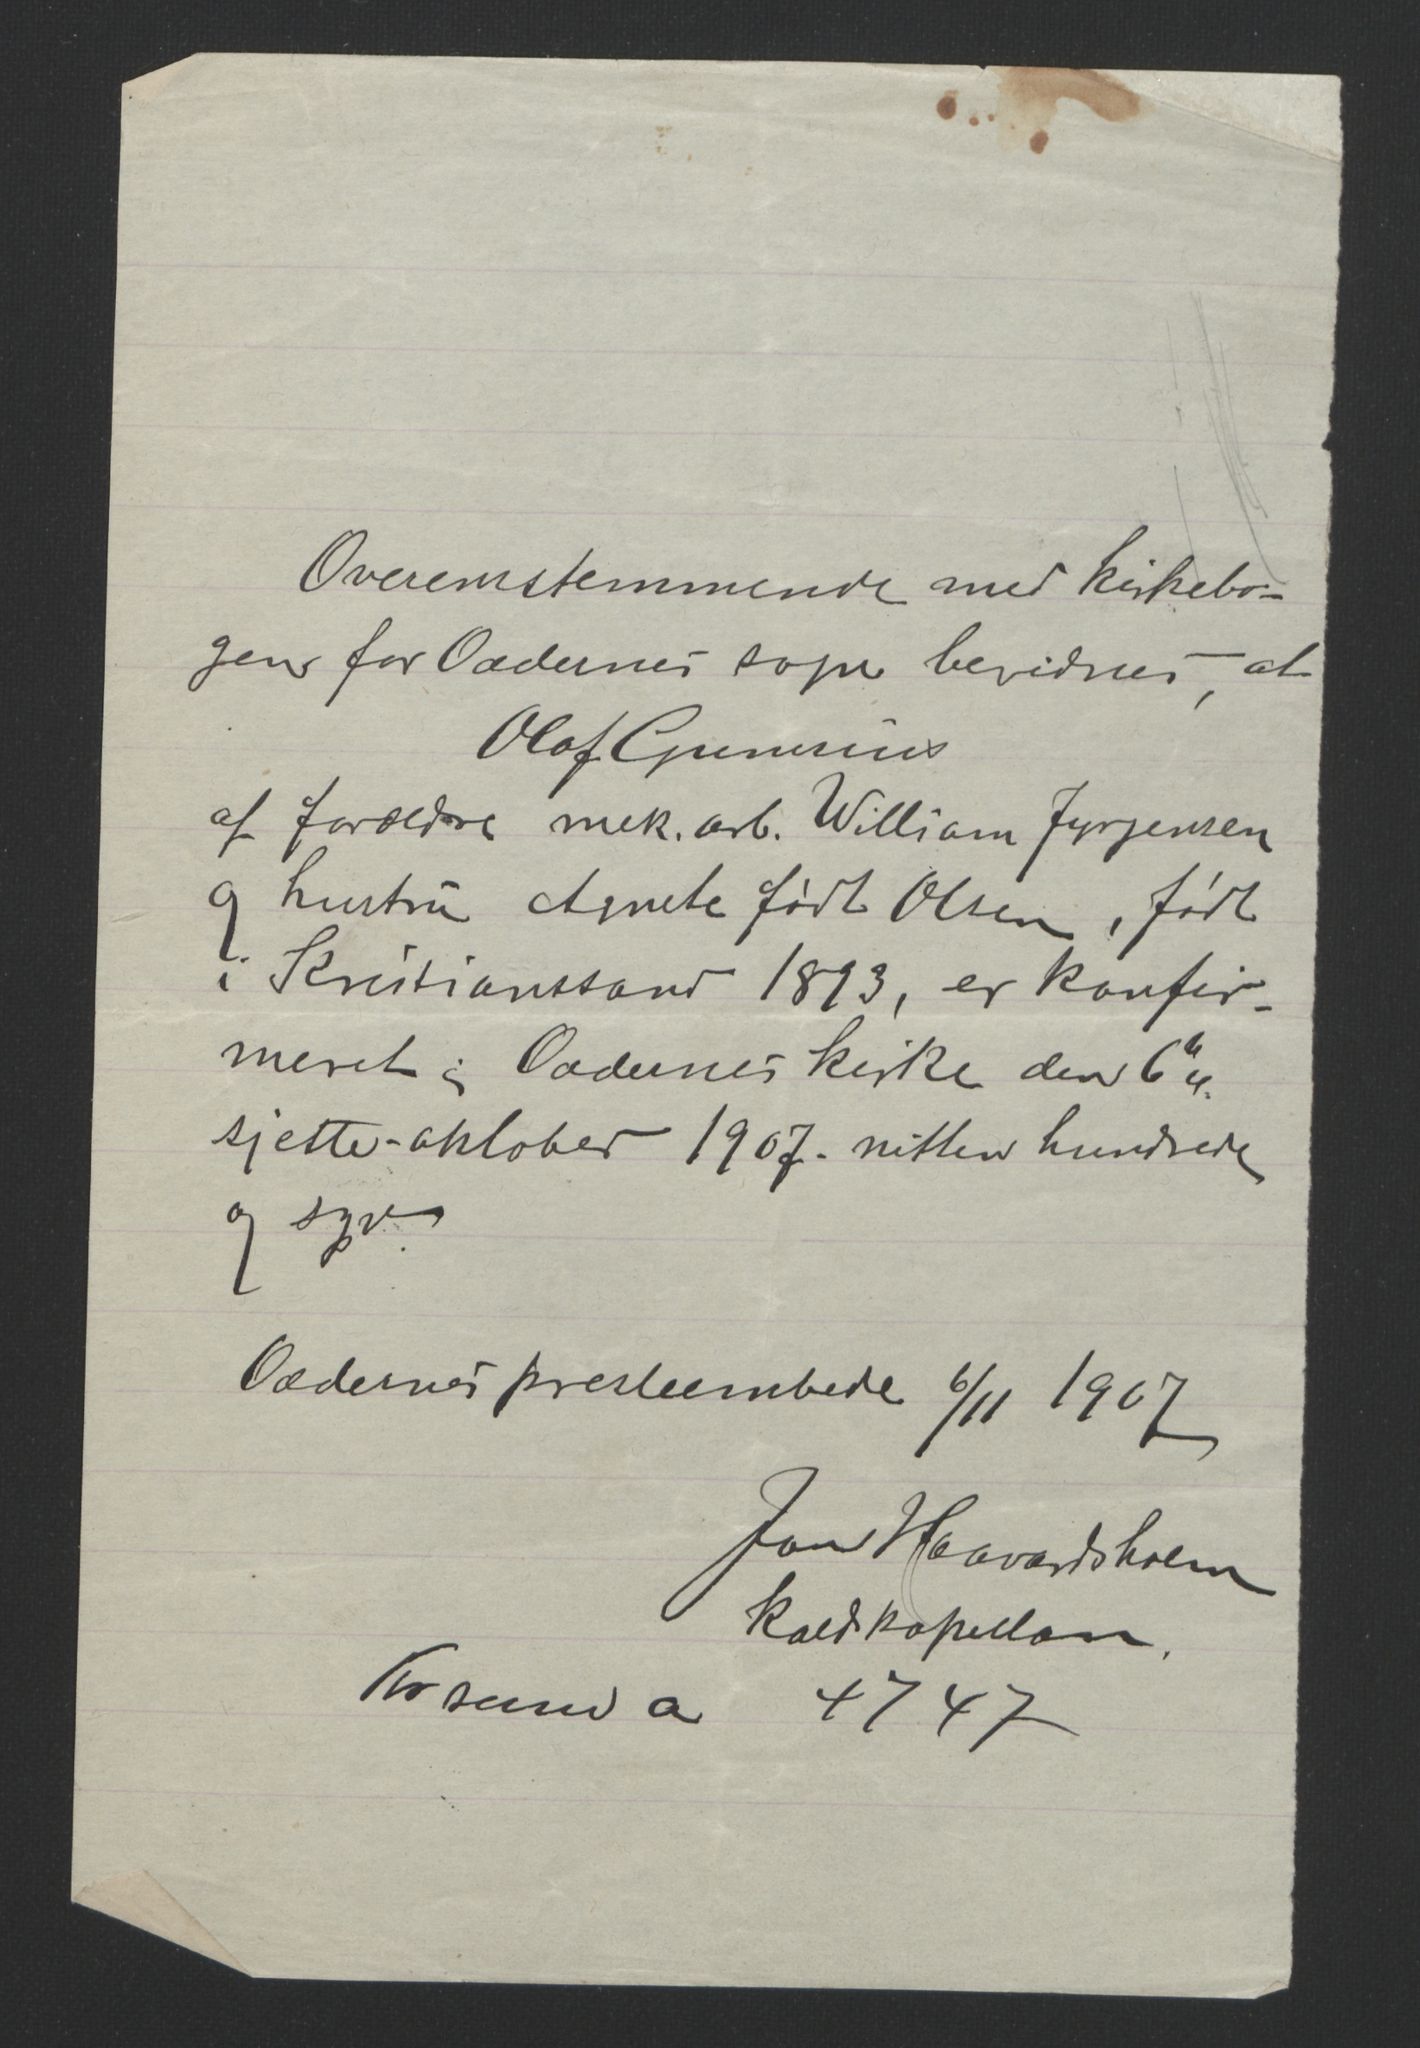 Overensstemmende med kirkebo-
gen for Oddernes sogn bevidnes, at
Olaf Gunerius
af forældre mek. arb. William Jyrgensen
og hustru Agnete født Olsen, født
i Kristianssand 1893, er konfir-
meret i Oddernes kirke den 6te
sjette - oktober 1907 - nitten hundrede
og syv.
Oddernes presteembede 6/11 1907
Jon Haavardsholm
kaldskapellan.
a 4747